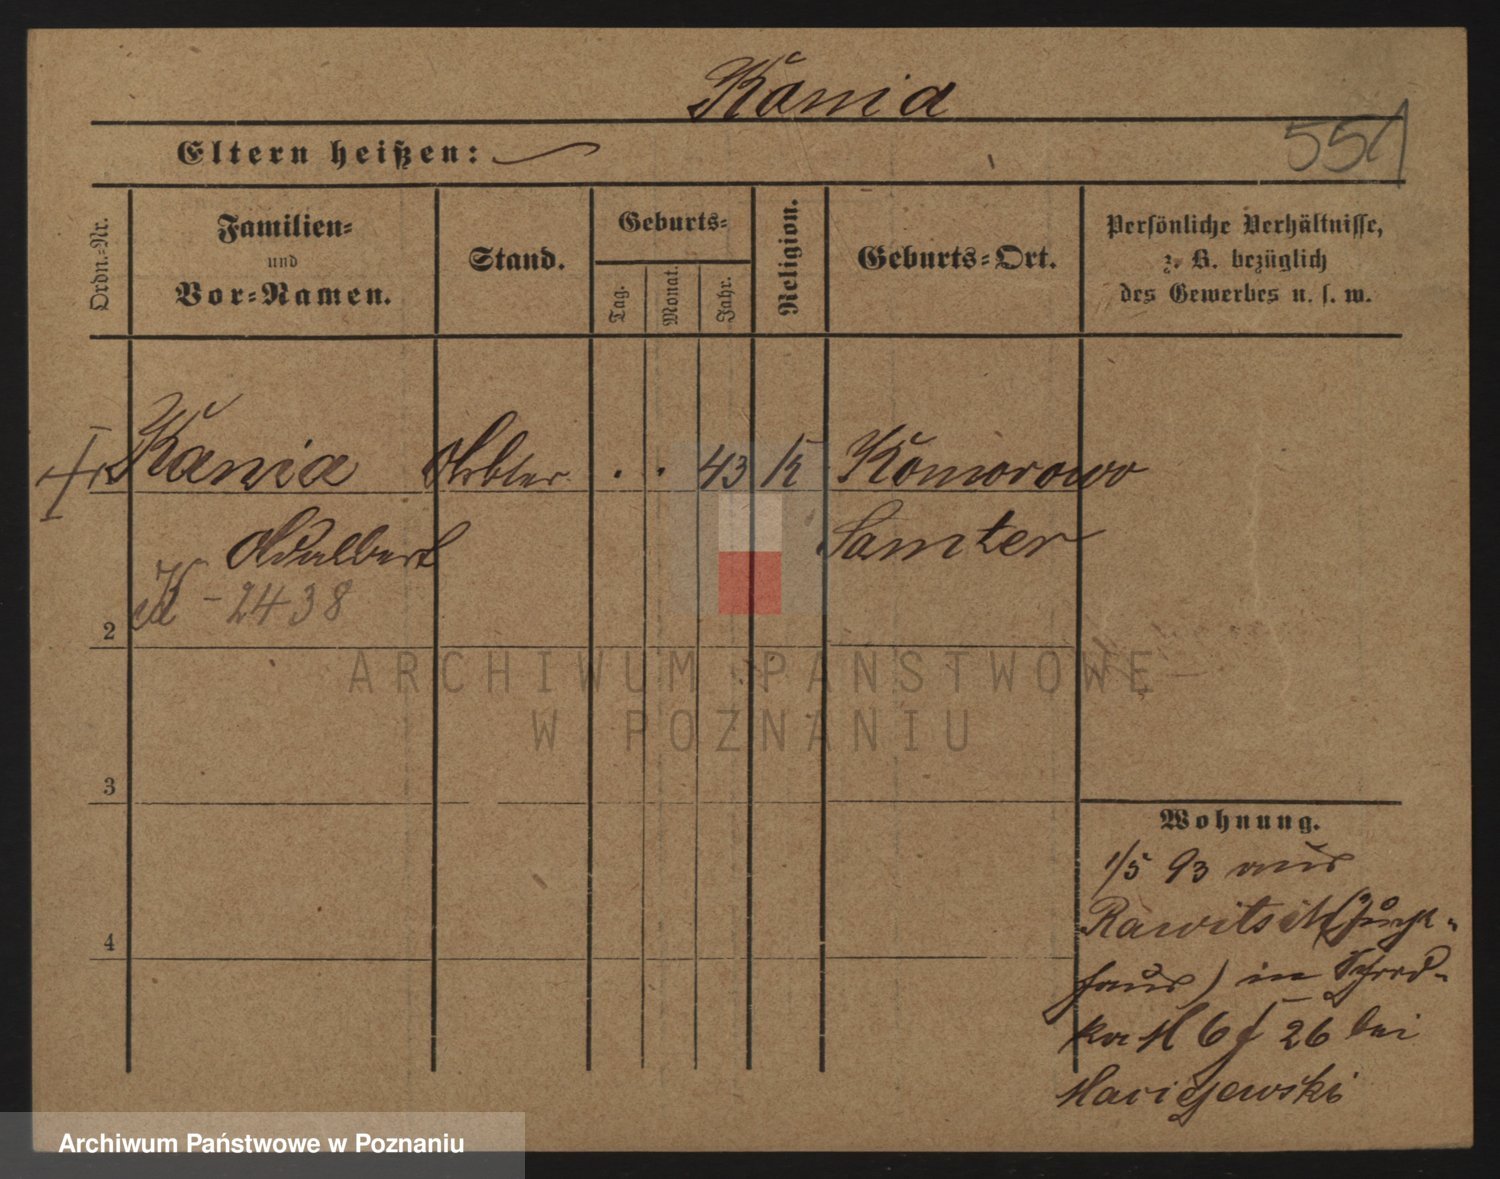 Kania
Eltern heißen:
551
Ordn.-Nr.
Familien-
und
Vor-Namen.
Stand.
Geburts-
Tag.
Monat.
Jahr.
Religion.
Geburts-Ort.
Persönliche Verhältnisse,
z. B. bezüglich
des Gewerbes u. s. w.
Kania Arbter . . 43 K Komorowo
Adalbert Samter
K - 2438
2
3
4
ARCHIWUM PAŃSTWOWE
W POZNANIU
Wohnung.
1/5 93 aus
Rawitsch (Zucht-
haus) in Schrod-
ka M 6 f 26 bei
Maciejewski
Archiwum Państwowe w Poznaniu